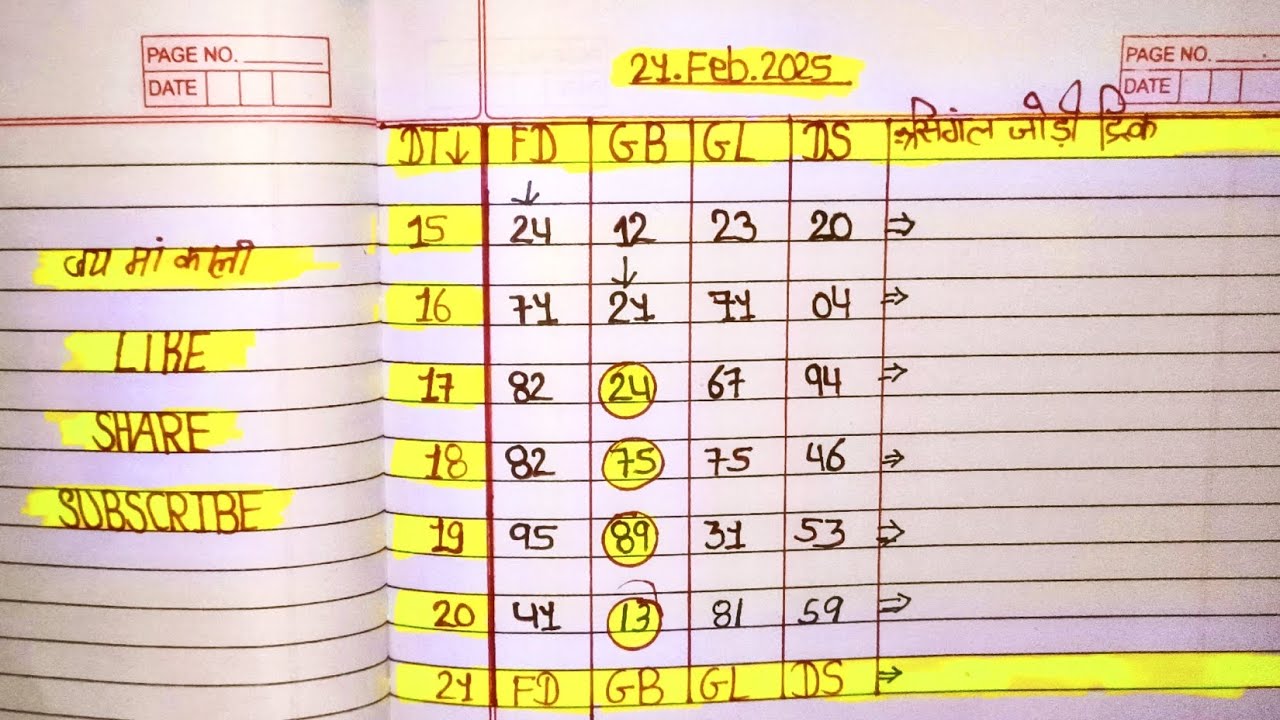 PAGE NO.
DATE
जय मां काली
LIKE
SHARE
SUBSCRIBE
21.Feb.2025
PAGE NO.
DATE
DT↓ FD GB GL DS ⇒सिंगल जोड़ी ट्रिक
↓
15 24 12 23 20 ⇒
↓
16 71 21 71 04 ⇒
17 82 24 67 94 ⇒
18 82 75 75 46 ⇒
19 95 89 31 53 ⇒
20 41 13 81 59 ⇒
21 FD GB GL DS ⇒